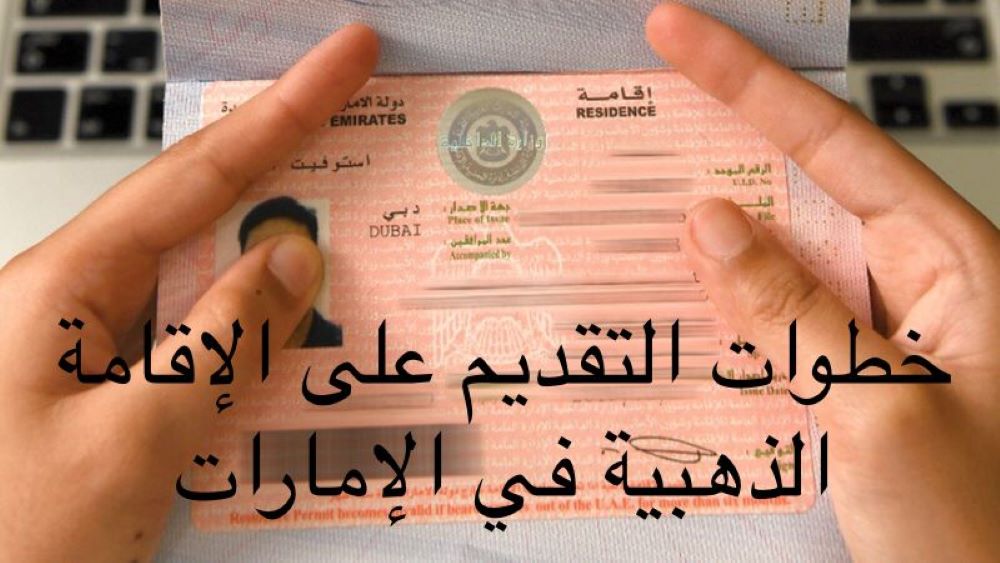 إقامة
RESIDENCE
دولة الامار
EMIRATES
وزارة الداخلية
الرقم الموحد :
U.I.D. No
File
دبي
DUBAI
جهة الإصدار :
Place of Issue
عدد المرافقين :
Accompanied by
خطوات التقديم على الإقامة
Issue Date
الذهبية في الإمارات
Residence Permit becomes invalid if bearer out of the U.A.E. for more than six months